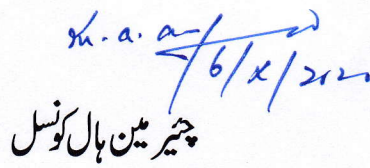 6/x/2020
چئیر مین ہال کونسل